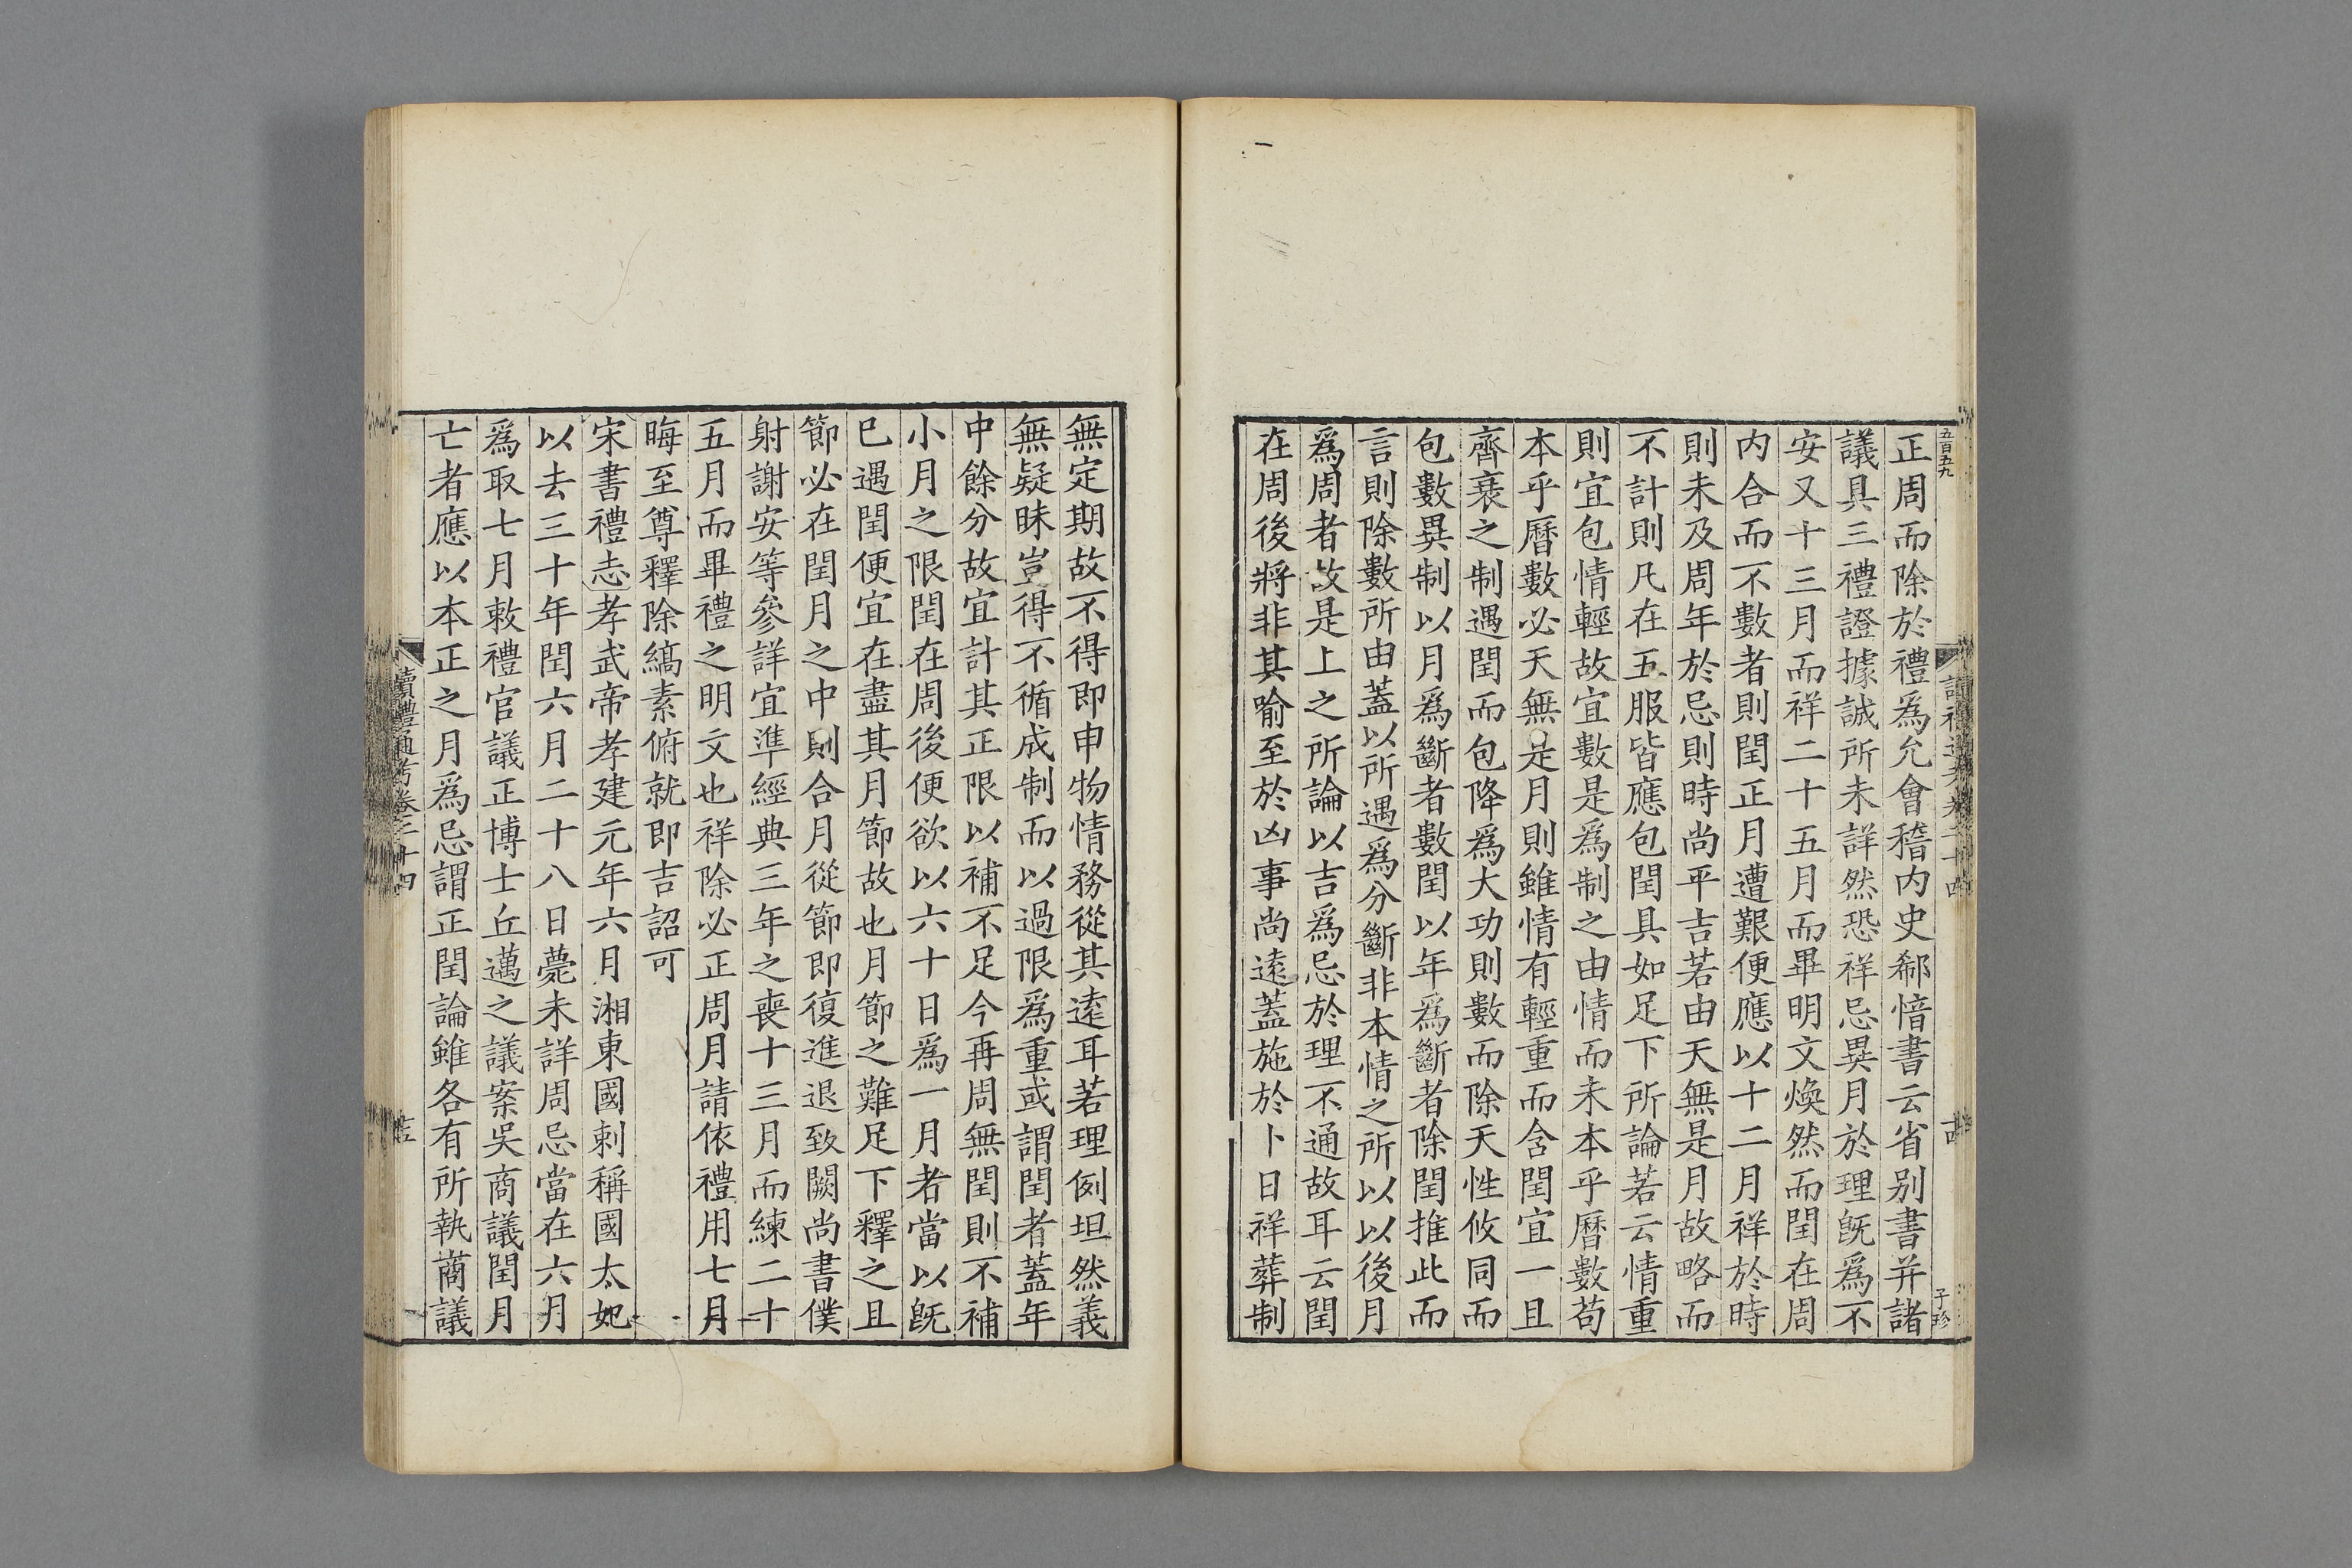 五百五九
正周而除於禮爲允會稽內史郗愔書云省別書并諸
議具三禮證據誠所未詳然恐祥忌異月於理旣爲不
安又十三月而祥二十五月而畢明文煥然而閏在周
内合而不數者則閏正月遭艱便應以十二月祥於時
則未及周年於忌則時尚平吉若由天無是月故略而
不計則凡在五服皆應包閏具如足下所論若云情重
則宜包情輕故宜數是爲制之由情而未本乎曆數苟
本乎曆數必天無是月則雖情有輕重而含閏宜一且
齊衰之制遇閏而包降爲大功則數而除天性攸同而
包數異制以月爲斷者數閏以年爲斷者除閏推此而
言則除數所由蓋以所遇爲分斷非本情之所以以後月
爲周者故是上之所論以吉爲忌於理不通故耳云閏
在周後將非其喻至於凶事尚遠蓋施於卜日祥葬制
子珍
無定期故不得即申物情務從其遠耳若理例坦然義
無疑昧豈得不循成制而以過限爲重或謂閏者蓋年
中餘分故宜計其正限以補不足今再周無閏則不補
小月之限閏在周後便欲以六十日爲一月者當以旣
已遇閏便宜在盡其月節故也月節之難足下釋之且
節必在閏月之中則合月從節即復進退致闕尚書僕
射謝安等參詳宜準經典三年之喪十三月而練二十
五月而畢禮之明文也祥除必正周月請依禮用七月
晦至尊釋除縞素俯就即吉詔可
宋書禮志孝武帝孝建元年六月湘東國刺稱國太妃
以去三十年閏六月二十八日薨未詳周忌當在六月
爲取七月敕禮官議正博士丘邁之議案吳商議閏月
亡者應以本正之月爲忌謂正閏論雖各有所執商議
讀禮通考卷二十四